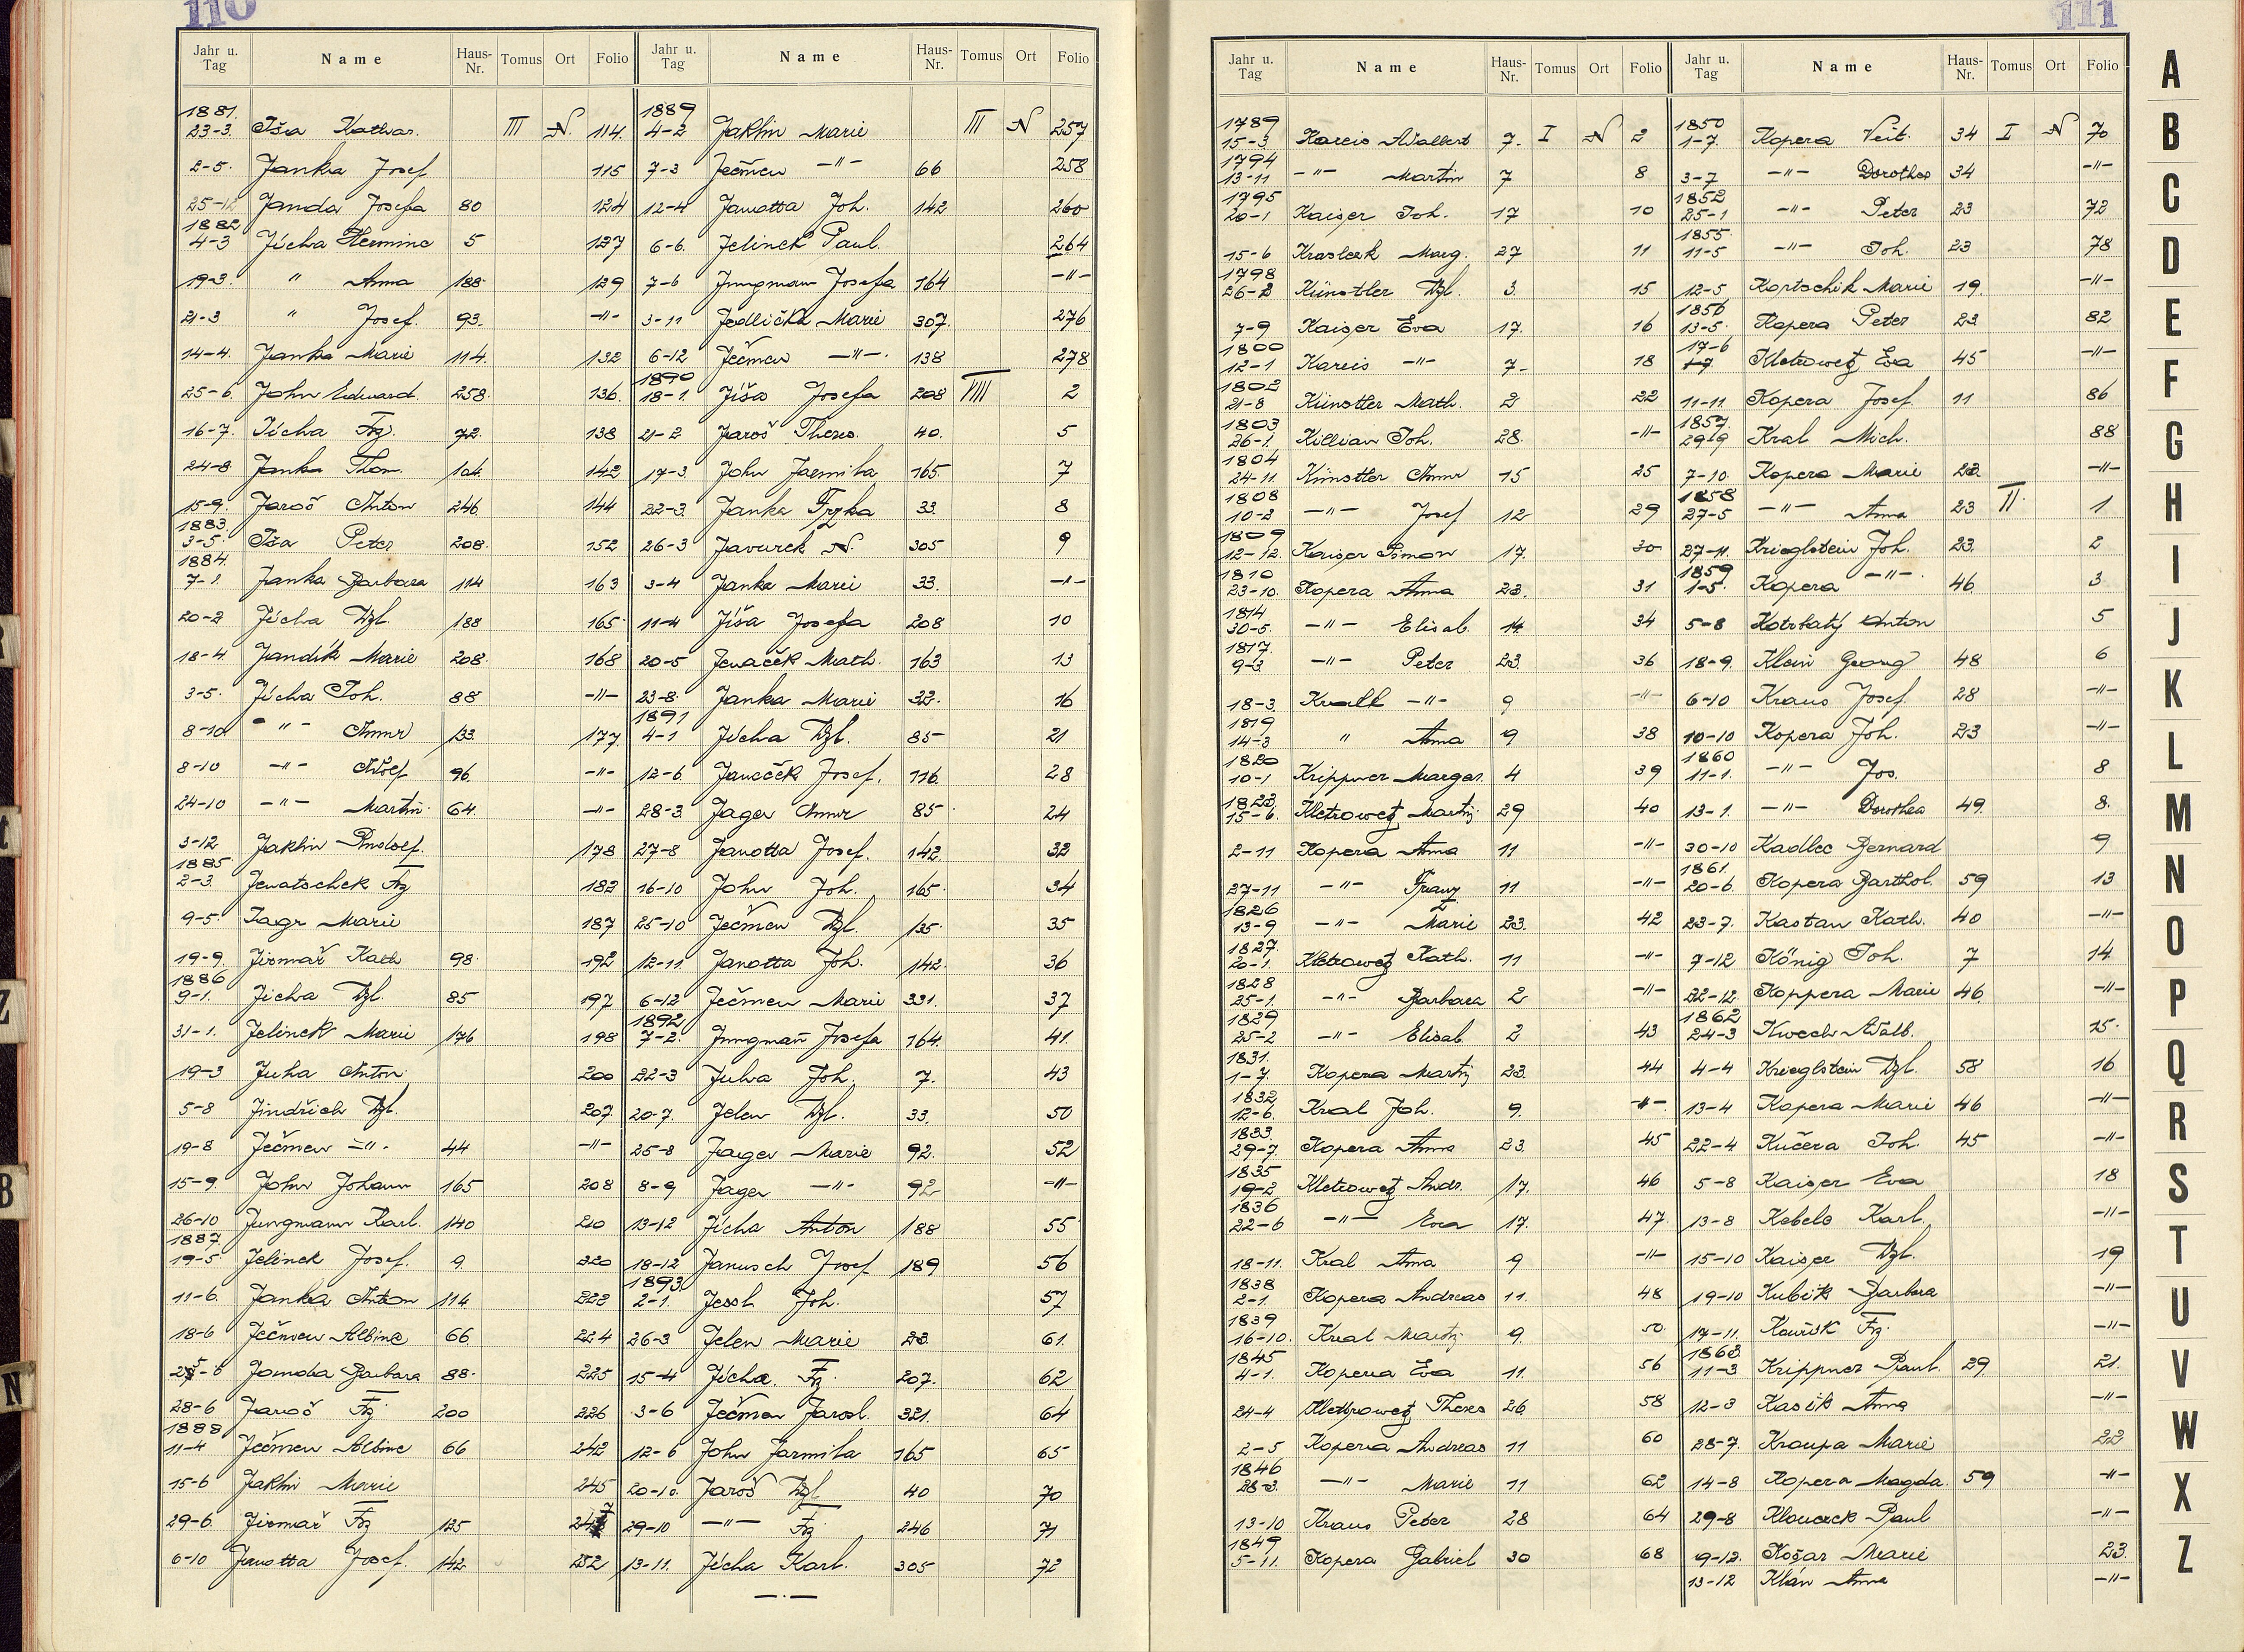 110
Jahr u. Tag Name Haus-Nr. Tomus Ort Folio Jahr u. Tag Name Haus-Nr. Tomus Ort Folio
1881. 23-3. Iša Kathar. III N. 114.
2-5. Janka Josef 115
25-12 Janda Josefa 80 124
1882 4-3 Jícha Hermine 5 127
19-3. " Anna 188. 129
21-3 " Josef. 93. -"-
14-4. Janka Marie 114. 132
25-6. John Eduard. 258. 136.
16-7. Jícha Frz. 72. 138
24-8 Janka Thom. 104. 142
15-9. Jaroš Anton 246 144
1883. 3-5. Iša Peter 208. 152
1884. 7-1. Janka Barbara 114 163
20-2 Jícha Wzl. 188 165
18-4. Jandík Marie 208. 168
3-5. Jícha Joh. 88 -"-
8-10 -"- Anna 133. 177
8-10 -"- Adolf 96 -"-
24-10 -"- Martin 64. -"-
3-12 Jaklin Rudolf. 178
1885 2-3. Jenatschek Frz 182
9-5. Jagr Marie 187
19-9. Jirmař Kath 98. 192
1886 9-1. Jícha Wzl. 85 197
31-1. Jelinek Marie 176 198
19-3 Juha Anton 200
5-8 Jindřich Wzl. 207
19-8 Ječmen -"- 44 -"-
15-9. John Johann 165 208
26-10 Jungmann Karl. 140 210
1887. 19-5 Jelinek Josef. 9. 220
11-6. Janka Anton 114 222
18-6 Ječmen Albine 66. 224
25-6 Jamda Barbara 88. 225
28-6 Jaroš Frz 200 226
1888 11-4 Ječmen Albine 66 242
15-6 Jaklin Marie 245
29-6. Jirmař Frz 125 247
6-10 Janotta Josef. 142 252
1889 4-2 Jaklin Marie III N 257
7-3 Ječmen -"- 66 258
12-4 Janotta Joh. 142 260
6-6. Jelinek Paul. 264
7-6 Jungmann Josefa 164 -"-
3-11 Jedlička Marie 307. 276
6-12 Ječmen -"-. 138 278
1890 18-1. Jíša Josefa 208 IIII 2
21-2 Jaroš Theres. 40. 5
17-3. John Jarmila 165. 7
22-3. Janka Frzka 33. 8
26-3 Javurek N. 305 9
3-4 Janka Marie 33. -"-
11-4 Jíša Josefa 208 10
20-5 Jenaček Math. 163 13
23-8. Janka Marie 32. 16
1891 4-1 Jícha Wzl. 85- 21
12-6 Janaček Josef. 116. 28
28-3. Jager Anna 85 24
27-8 Janotta Josef. 142. 32
16-10 John Joh. 165. 34
25-10 Ječmen Wzl. 135. 35
12-11. Janotta Joh. 142. 36
6-12 Ječmen Marie 331. 37
1892 7-2. Jungmañ Josefa 164. 41.
22-3 Juha Joh. 7. 43
20-7. Jelen Wzl. 33. 50
25-8 Jager Marie 92. 52
8-9 Jager -"- 92 -"-
13-12 Jícha Anton 188 55
18-12 Janusch Josef 189 56
1893. 2-1. Jessl Joh. 57
26-3 Jelen Marie 23. 61.
15-4 Jícha. Frz. 207. 62
3-6 Ječmen Jarosl. 321. 64
12-6 John Jarmila 165 65
20-10. Jaroš Wzl 40 70
29-10 -"- Frz 246 71
13-11. Jícha Karl. 305 72
111
Jahr u. Tag Name Haus-Nr. Tomus Ort Folio Jahr u. Tag Name Haus-Nr. Tomus Ort Folio
1789 15-3 Kareis Adalbert 7. I N 2
1794 13-11 -"- Martin 7 8
1795 20-1 Kaiser Joh. 17 10
15-6 Marg. 27 11
1798 26-2 Künstler Wzl. 3. 15
7-9 Kaiser Eva 17. 16
1800 12-1 Kareis -"- 7- 18
1802 21-8 Künstler Math. 2 22
1803 26-1. Killian Joh. 28. -"-
1804 24-11. Künstler Anna 15 25
1808 10-2 -"- Josef 12 29
1809 12-12. Kaiser Simon 17. 30
1810 23-10. Kopera Anna 23. 31
1814 30-5. -"- Elisab. 14. 34
1817. 9-3 -"- Peter 23. 36
18-3. Krall -"- 9 -"-
1819 14-3 " Anna 9 38
1820 10-1 Krippner Margar. 4 39
1823. 15-6. Kletrowetz Martin 29 40
2-11 Kopera Anna 11 -"-
27-11 -"- Franz 11 -"-
1826 13-9 -"- Marie 23. 42
1827. 20-1. Kletrowetz Kath. 11 -"-
1828 25-1. -"- Barbara 2 -"-
1829 25-2 -"- Elisab. 2 43
1831. 1-7. Kopera Martin 23. 44
1832 12-6. Kral Joh. 9. -"-
1833. 29-7. Kopera Anna 23. 45
1835 19-2 Kletrowetz Andr. 17. 46
1836 22-6 -"- Eva 17. 47.
18-11. Kral Anna 9 -"-
1838 2-1. Kopera Andreas 11. 48
1839 16-10. Kral Martin 9. 50
1845 4-1. Kopera Eva 11. 56
24-4 Kletrowetz Theres 26. 58
2-5 Kopera Andreas 11 60
1846 28-3. -"- Marie 11 62
13-10 Kraus Peter 28 64
1849 5-11. Kopera Gabriel 30 68
1850 1-7. Kopera Veit. 34 I N 70
3-7 -"- Dorothea 34 -"-
1852 25-1 -"- Peter 23 72
1855. 11-5 -"- Joh. 23 78
12-5 Kortschik Marie 19. -"-
1856 13-5. Kopera Peter 23 82
17-6 Kletrowetz Eva 45 -"-
11-11 Kopera Josef. 11 86
1857. 29-9 Kral Mich. 88
7-10. Kopera Marie 23. -"-
1858 27-5 -"- Anna 23 II. 1
27-11. Krieglstein Joh. 23. 2
1859 1-5. Kopera -"-. 46 3
5-8 Kotrbatý Anton 5
18-9. Klein Georg 48 6
6-10 Kraus Josef. 28 -"-
10-10 Kopera Joh. 23 -"-
1860 11-1. -"- Jos. 8
13-1. -"- Dorothea 49. 8.
30-10 Kadlec Bernard 9
1861. 20-6. Kopera Barthol. 59 13
23-7. Kastan Kath. 40 -"-
7-12 König Joh. 7 14
22-12. Koppera Marie 46 -"-
1862 24-3 Kwech Adalb. 15.
4-4 Krieglstein Wzl. 58 16
13-4 Kopera Marie 46 -"-
22-4 Kučera Joh. 45 -"-
5-8 Kaiser Eva 18
13-8 Kebele Karl. -"-
15-10 Kaiser Wzl. 19
19-10 Kubik Barbara -"-
17-11. Kouřík Frz. -"-
1863. 11-3 Krippner Paul. 29 21.
12-3 Kasik Anna -"-
28-7. Kroupa Marie 22
14-8 Kopera Magda. 59 -"-
29-8 Kloucek Paul -"-
9-12. Košar Marie 23.
13-12 Klán Anna -"-
A
B
C
D
E
F
G
H
I
J
K
L
M
N
O
P
Q
R
S
T
U
V
W
X
Z